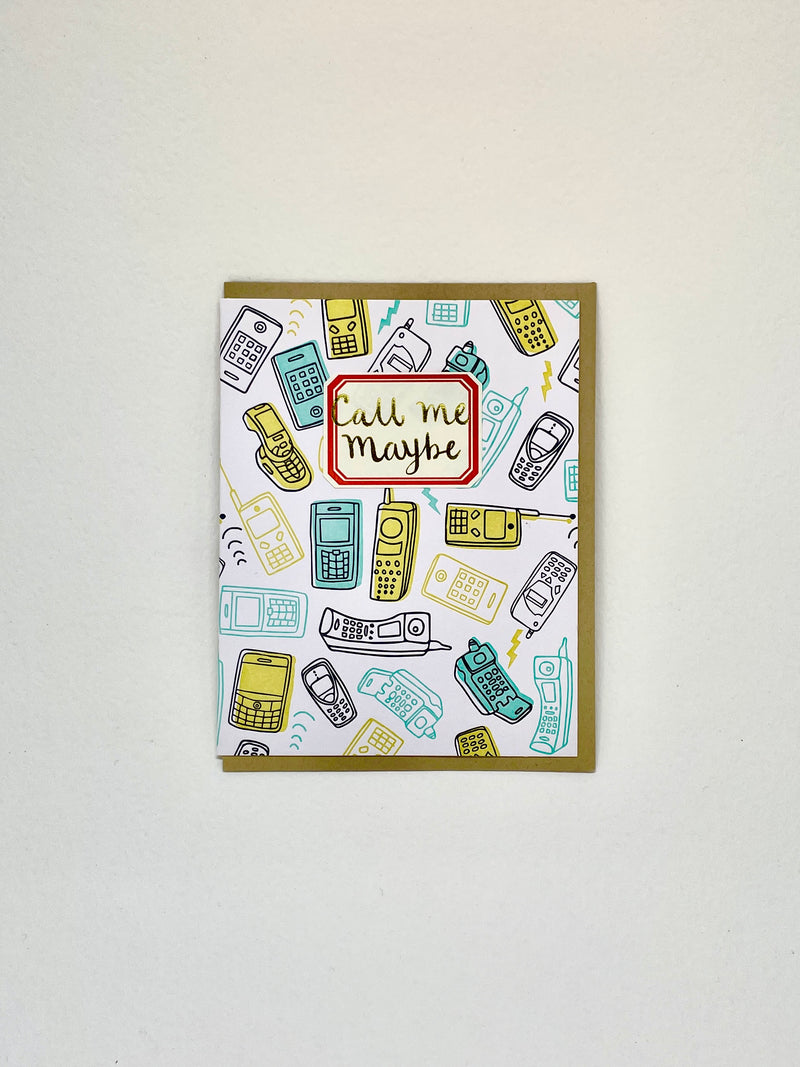 Call me
Maybe